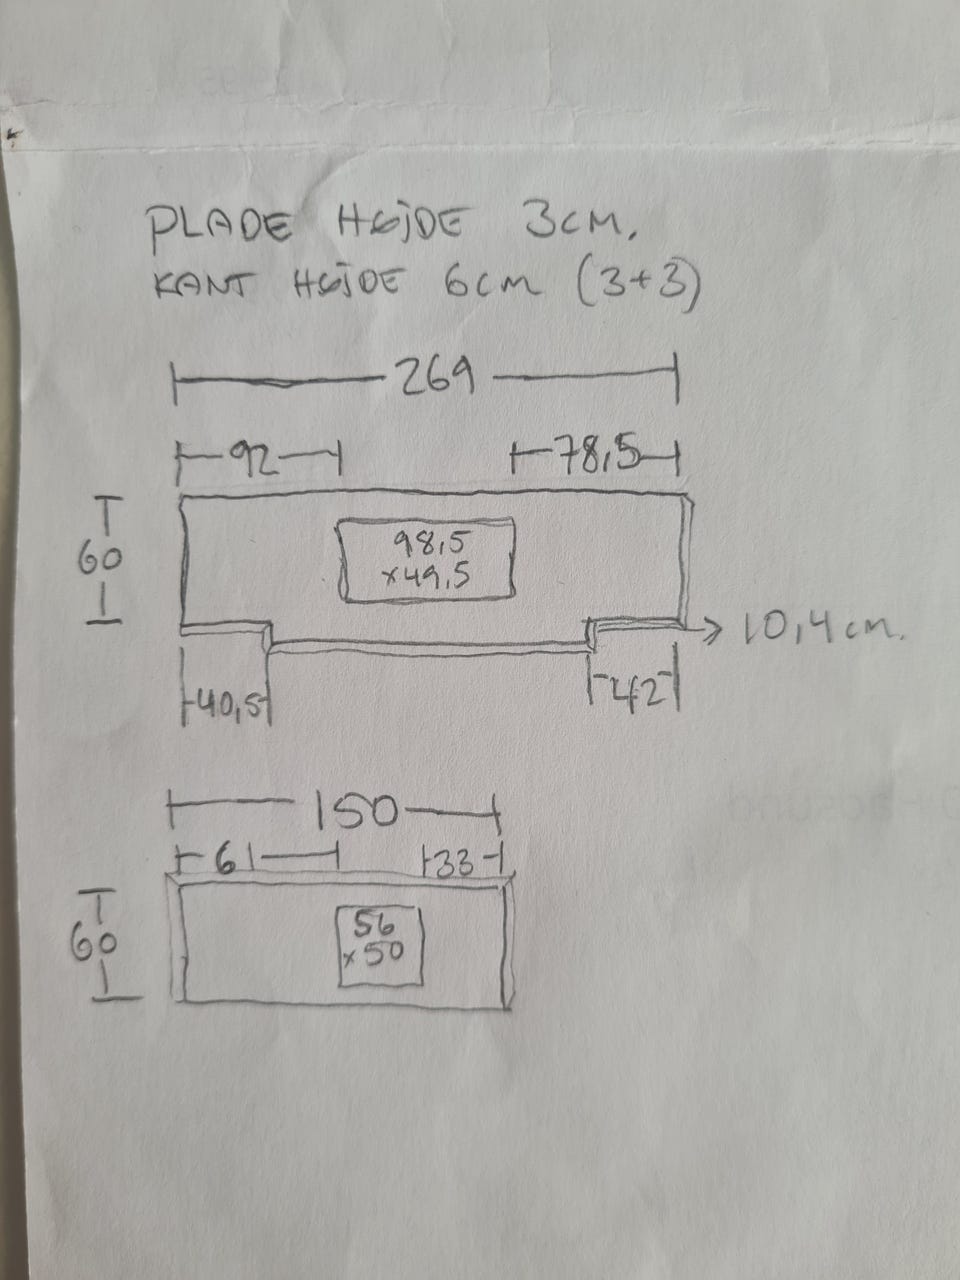 PLADE HØJDE 3CM.
KANT HØJDE 6CM (3+3)
269
92 78,5
60
98,5
×49,5
10,4cm.
40,5 42
150
61 33
60
56
×50